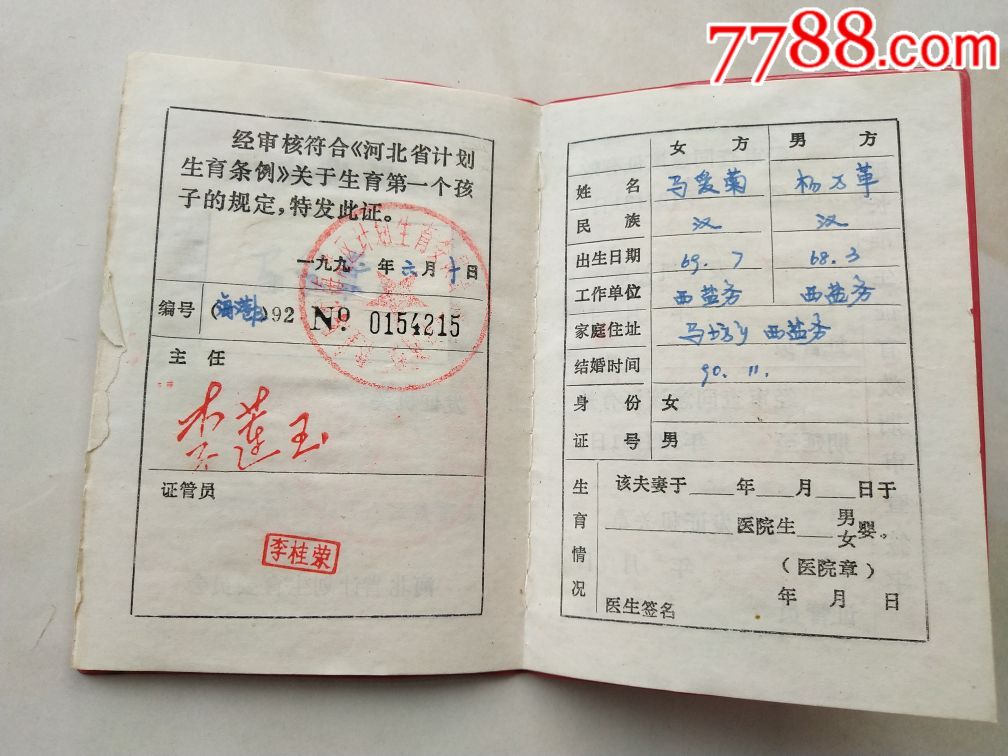 7788.com
经审核符合《河北省计划
生育条例》关于生育第一个孩
子的规定，特发此证。
一九九二年六月十日
编号（海港）92 № 0154215
主任
李莲玉
证管员
李桂荣
女方 男方
姓名 马爱菊 杨万革
民族 汉 汉
出生日期 69.7 68.3
工作单位 西盐务 西盐务
家庭住址 马坊乡 西盐务
结婚时间 90.11.
身份 女
证号 男
生育情况
该夫妻于 年 月 日于
医院生 男女 婴。
（医院章）
医生签名 年 月 日